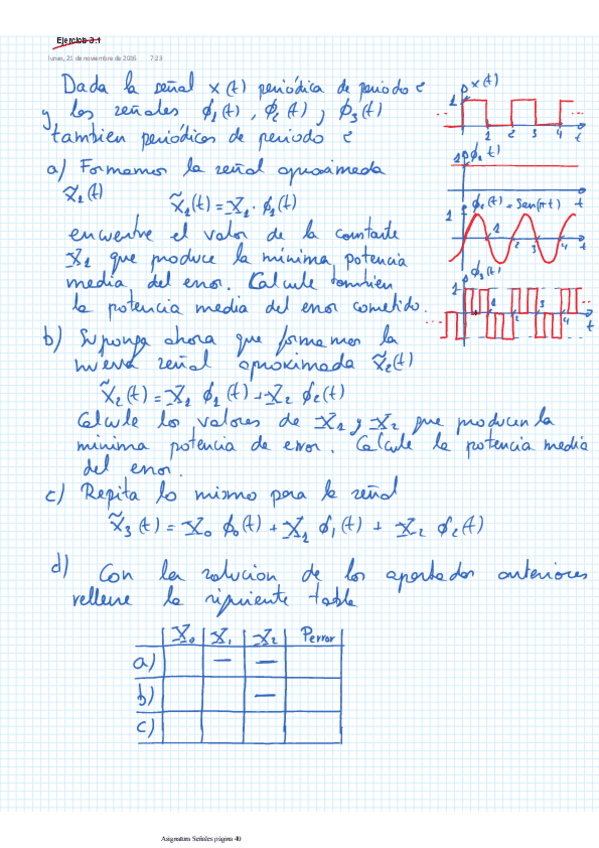 Ejercicio 3.1
lunes, 21 de noviembre de 2016 7:23
Dada la señal x(t) periódica de periodo 2
y las señales ϕ1(t), ϕ2(t) y ϕ3(t)
tambien periódicas de periodo 2
a) Formamos la señal aproximada
x̃1(t)
x̃1(t) = X1 · ϕ1(t)
encuentre el valor de la constante
X1 que produce la mínima potencia
media del error. Calcule tambien
la potencia media del error cometido.
b) Suponga ahora que formamos la
nueva señal aproximada x̃2(t)
x̃2(t) = X1 ϕ1(t) + X2 ϕ2(t)
Calcule los valores de X1 y X2 que producen la
mínima potencia de error. Calcule la potencia media
del error.
c) Repita lo mismo para la señal
x̃3(t) = X0 ϕ0(t) + X1 ϕ1(t) + X2 ϕ2(t)
d) Con la solucion de los apartados anteriores
rellene la siguiente tabla
X0 X1 X2 Perror
a) — —
b) —
c)
x(t)
1
1 2 3 4 t
1 ϕ1(t)
t
ϕ2(t) = Sen(πt)
1
1 2 3 4 t
ϕ3(t)
1
1 2 3 4 t
Asignatura Señales página 40